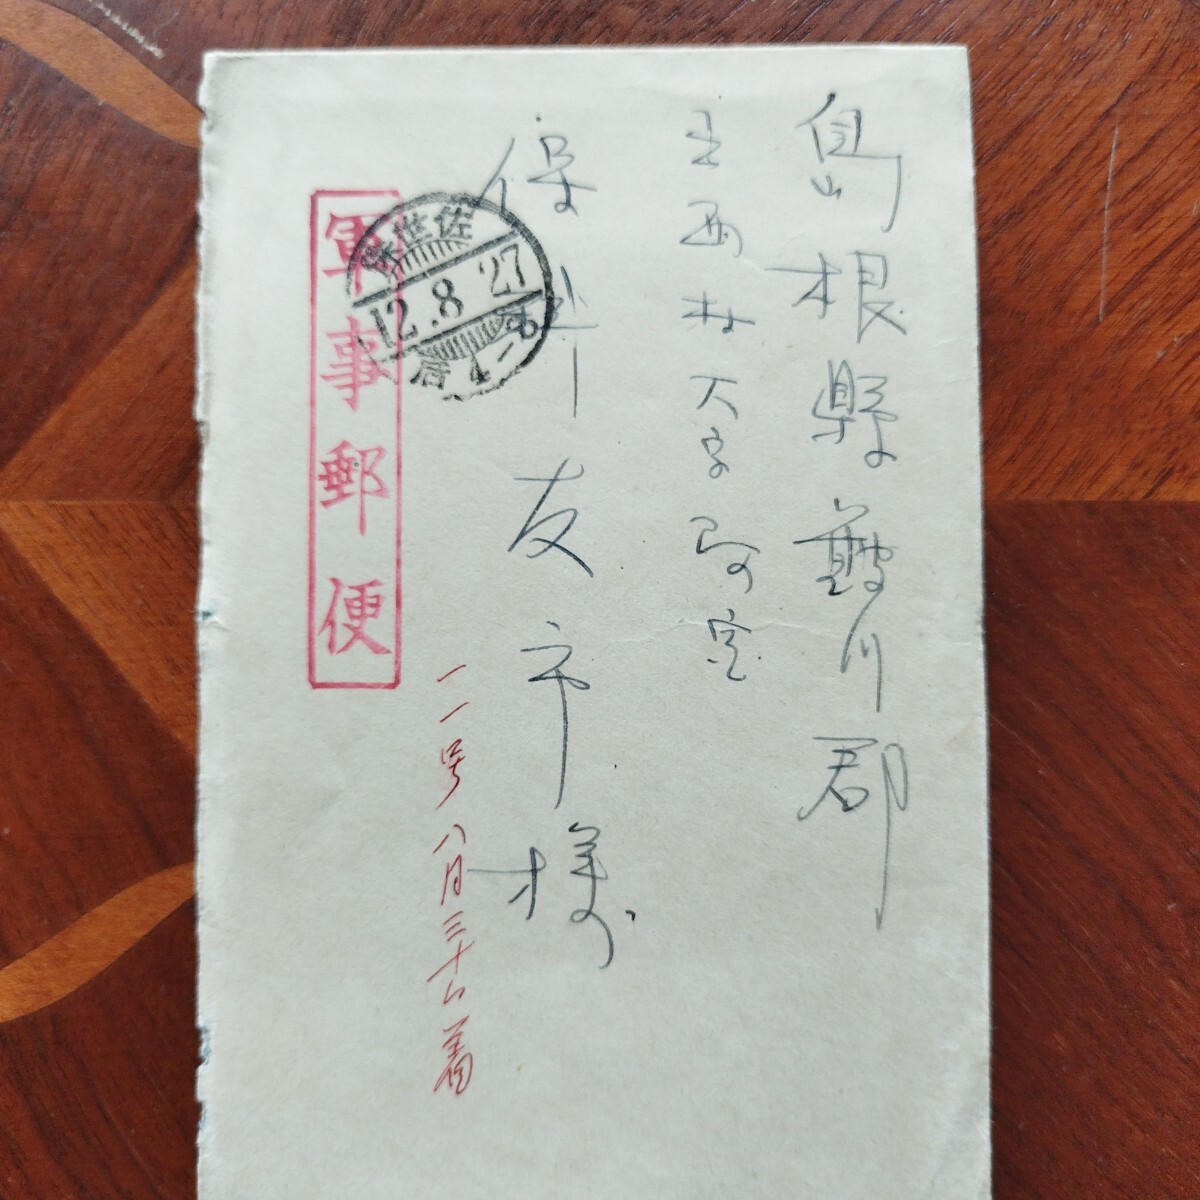 島根縣簸川郡
西村大字阿宮
保科友市様
軍事郵便
佐世保
12.8.27
后4-8
一一号八月三十日着